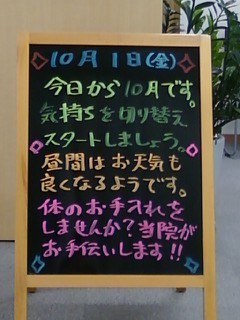 10月1日(金)
今日から10月です。
気持ちを切り替え
スタートしましょう。
昼間はお天気も
良くなるようです。
体のお手入れを
しませんか?当院が
お手伝いします!!